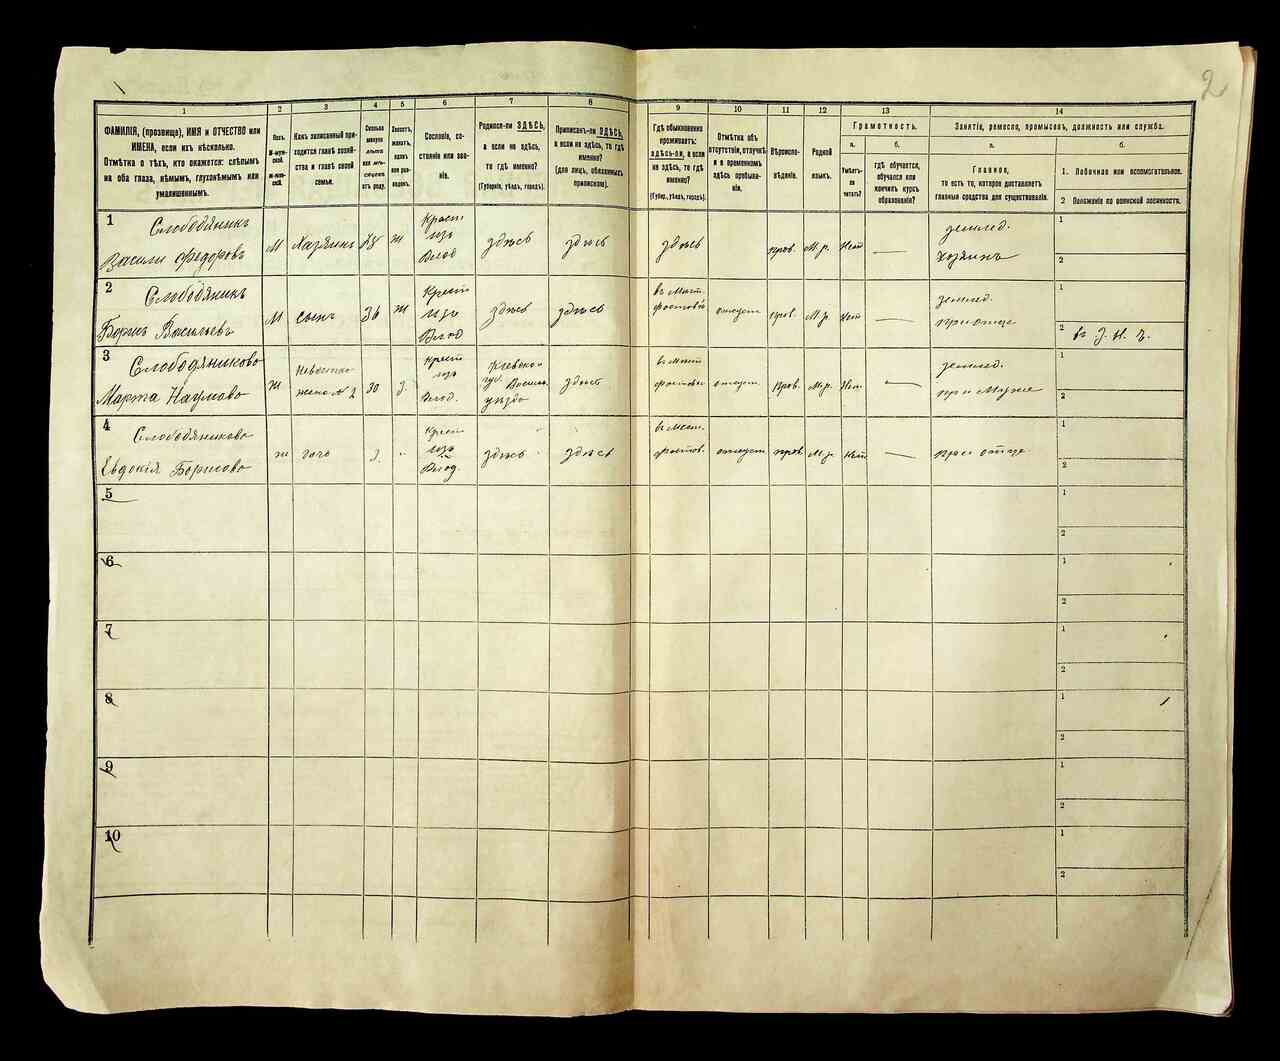 2
1
2
3
4
5
6
7
8
9
10
11
12
13
14
ФАМИЛІЯ, (прозвища), ИМЯ и ОТЧЕСТВО или
ИМЕНА, если ихъ нѣсколько.
Отмѣтка о тѣхъ, кто окажется: слѣпымъ
на оба глаза, нѣмымъ, глухонѣмымъ или
умалишеннымъ.
Полъ.
М-муж-
ской.
ж-жен-
скій.
Какъ записанный при-
ходится главѣ хозяй-
ства и главѣ своей
семьи.
Сколько
минуло
лѣтъ
или мѣ-
сяцевъ
отъ роду.
Холостъ,
женатъ,
вдовъ
или раз-
веденъ.
Сословіе, со-
стояніе или зва-
ніе.
Родился-ли ЗДѢСЬ,
а если не здѣсь,
то гдѣ именно?
(Губернія, уѣздъ, городъ).
Приписанъ-ли ЗДѢСЬ,
а если не здѣсь, то гдѣ
именно?
(для лицъ, обязанныхъ
припискою).
Гдѣ обыкновенно
проживаетъ:
здѣсь-ли, а если
не здѣсь, то гдѣ
именно?
(Губер., уѣздъ, городъ).
Отмѣтка объ
отсутствіи, отлучкѣ
и о временномъ
здѣсь пребыва-
ніи.
Вѣроиспо-
вѣданіе.
Родной
языкъ.
Грамотность.
а.
Умѣетъ-
ли
читать?
б.
гдѣ обучается,
обучался или
кончилъ курсъ
образованія?
Занятіе, ремесло, промыселъ, должность или служба.
а.
Главное,
то есть то, которое доставляетъ
главныя средства для существованія.
б.
1. Побочное или вспомогательное.
2 Положеніе по воинской повинности.
1
Слободяникъ
Васили Федоровъ
М
Хазяинъ
ж
Крест
изъ
Влад
здѣсь
здѣсь
здѣсь
прав.
М.р.
Нет
—
землед.
хозяинъ
1
2
2
Слободяникъ
Борисъ Васильевъ
М
сынъ
36
ж
Крест
изъ
Влад
здѣсь
здѣсь
въ Мест.
отсуст
прав.
М.р.
нет
—
землед.
приотце
1
2
3
Слободяникова
Марта Наумова
ж
Невестка
жена № 2
30
з.
крест
изъ
Влад.
Киевской
губ.
уезда
здѣсь
въ Мест
отсуст.
прав.
М.р.
Нет
—
землед.
при Муже
1
2
4
Слободяникова
Евдокія Борисова
ж
дочь
крест
изъ
Влад.
здѣсь
здѣсь
въ Мест.
отсуст
прав
М.р.
Нет
—
при отце
1
2
5
1
2
6
1
2
7
1
2
8
1
2
9
1
2
10
1
2